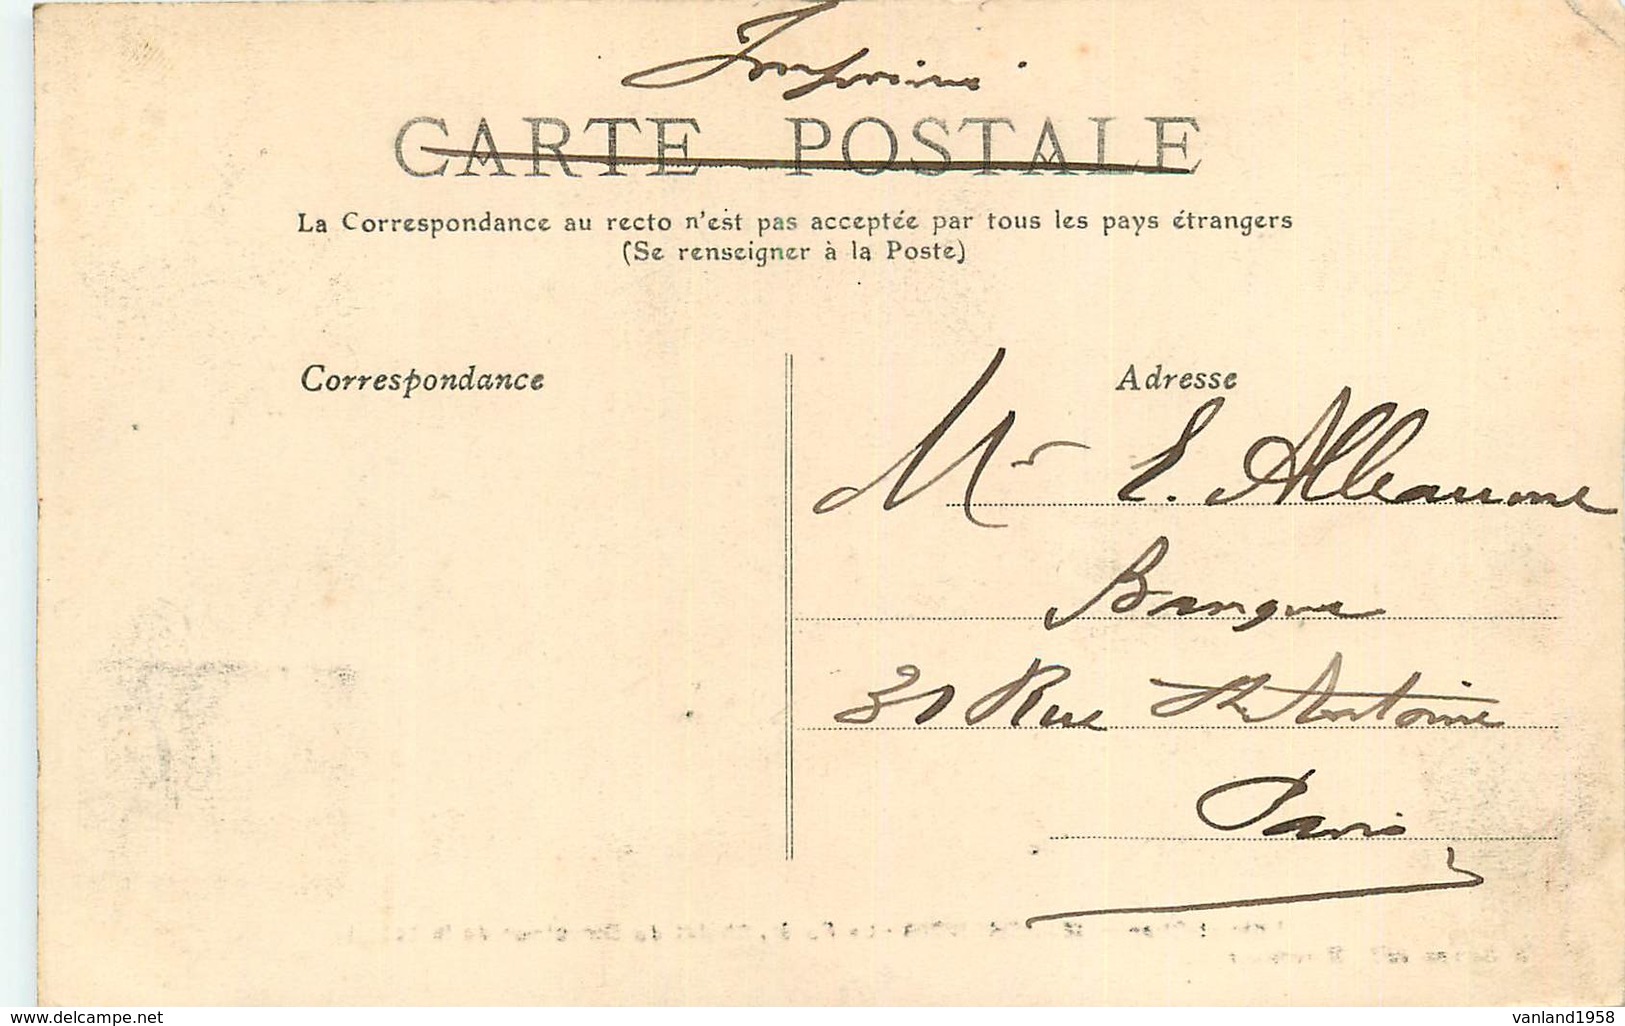 Imprimé
CARTE POSTALE
La Correspondance au recto n'est pas acceptée par tous les pays étrangers
(Se renseigner à la Poste)
Correspondance
Adresse
Mr E. Alleaume
Banque
31 Rue St Antoine
Paris
www.delcampe.net
vanland1958